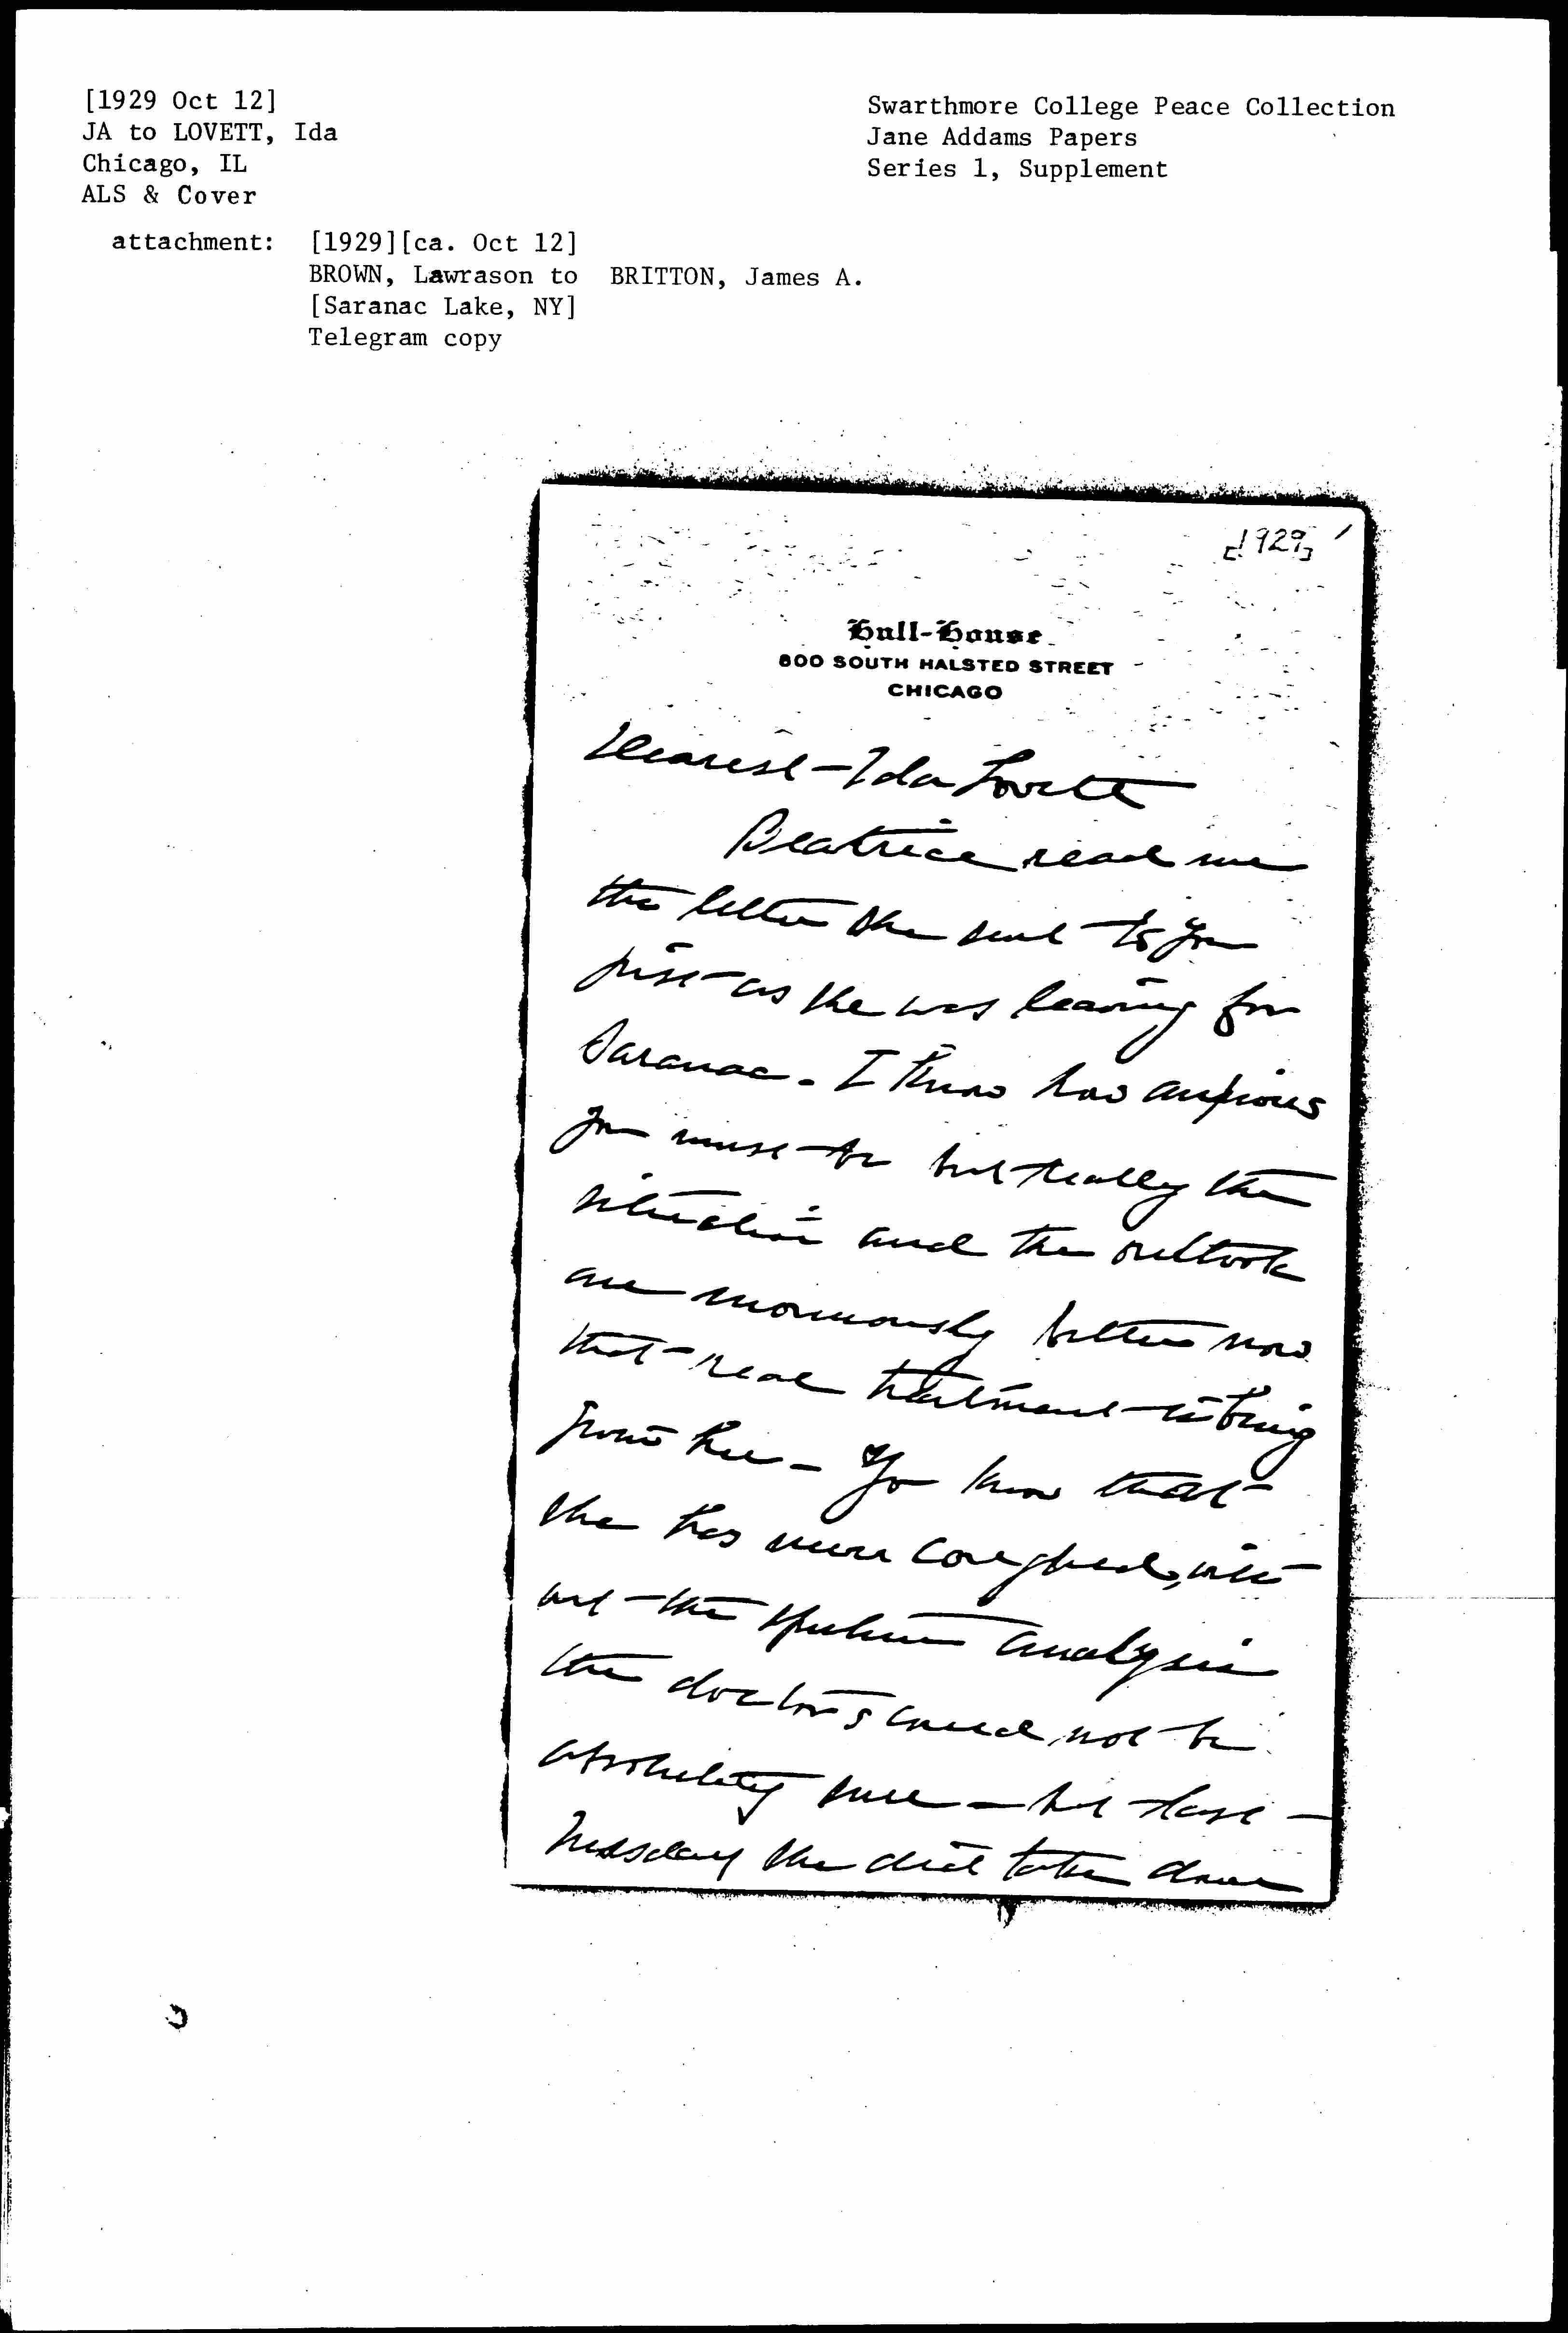 [1929 Oct 12]
JA to LOVETT, Ida
Chicago, IL
ALS & Cover
Swarthmore College Peace Collection
Jane Addams Papers
Series 1, Supplement
attachment: [1929][ca. Oct 12]
BROWN, Lawrason to BRITTON, James A.
[Saranac Lake, NY]
Telegram copy
[1929]
Hull-House
800 SOUTH HALSTED STREET
CHICAGO
Dearest Ida Lovett
Beatrice read me
the letter she sent to you
just as she was leaving for
Saranac. I know how anxious
you must be but really the
situation and the outlook
are enormously better now
that real treatment is being
given her - You know that
she has never coughed, with
out the sputum analysis
the doctors could not be
absolutely sure - but last
Tuesday she did take down